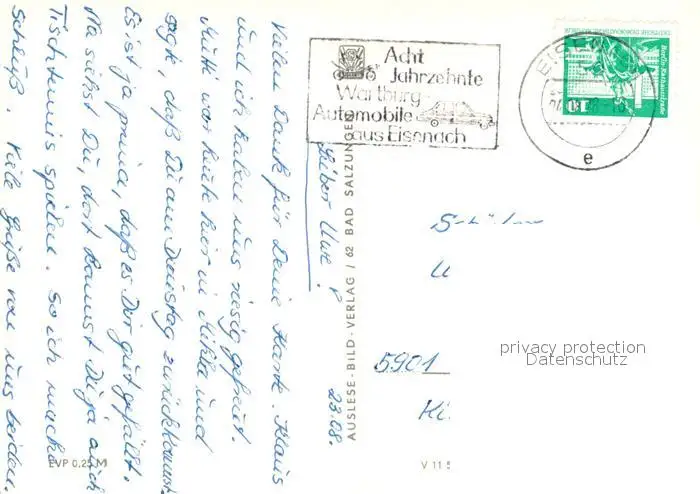 Acht
Jahrzehnte
Wartburg
Automobile
aus Eisenach
EISEN
e
10
DEUTSCHE DEMOKRATISCHE
Berlin-Rathausstraße
23.08.
Lieber Uwe!
Vielen Dank für Deine Karte. Klaus
und ich haben uns riesig gefreut.
Mutti war heute hier in Mihla und
sagt, daß Du am Dienstag zurückkommst.
Es ist ja prima, daß es Dir gut gefällt.
Na siehst Du, dort kannst Du ja auch
Tischtennis spielen. So ich mache
Schluß. Viele Grüße von uns beiden.
AUSLESE-BILD-VERLAG / 62 BAD SALZUNGEN
5901
privacy protection
Datenschutz
EVP 0,25 M
V 11 5